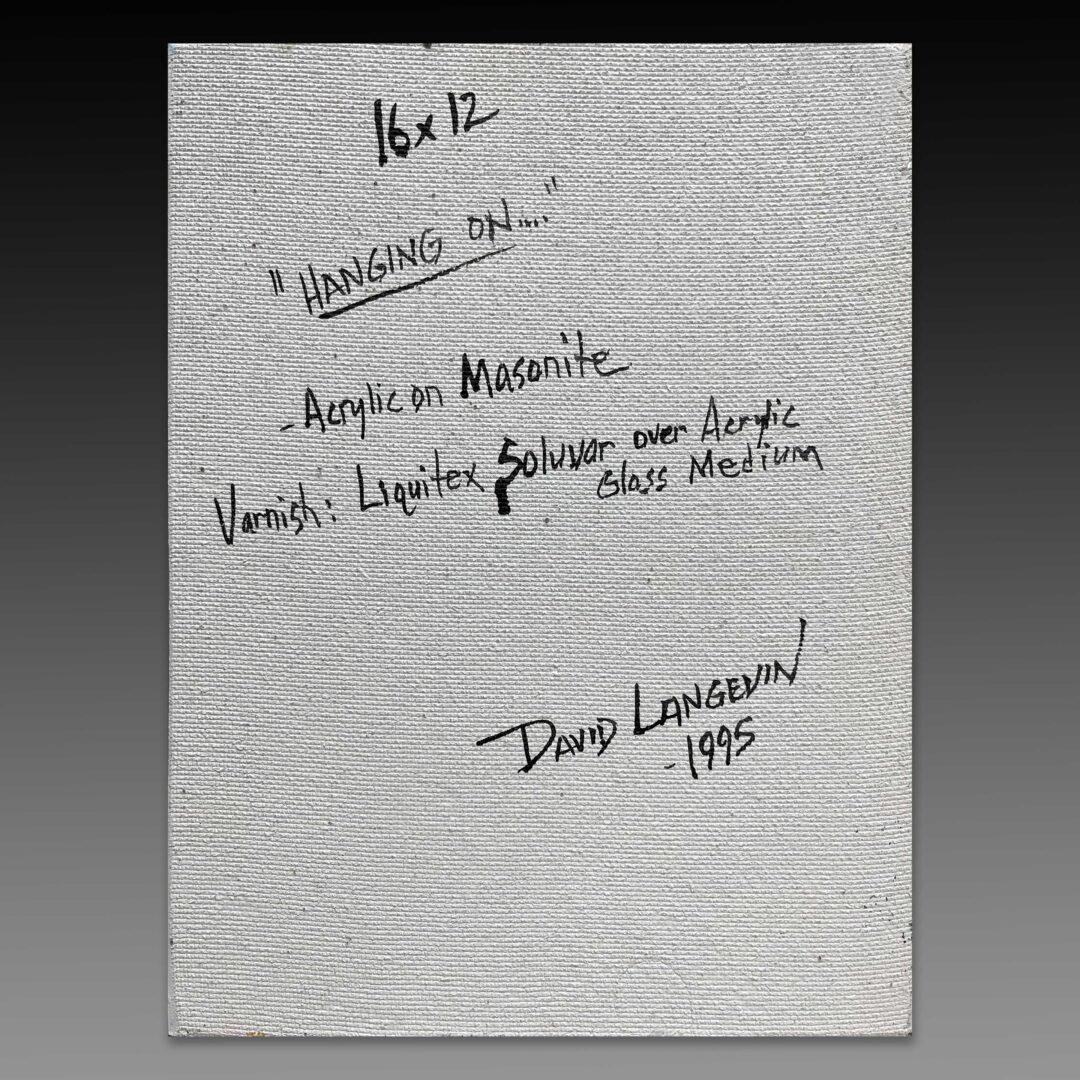 16x12
"HANGING ON...."
- Acrylic on Masonite
Varnish: Liquitex Soluvar over Acrylic
Gloss Medium
DAVID LANGEVIN
- 1995